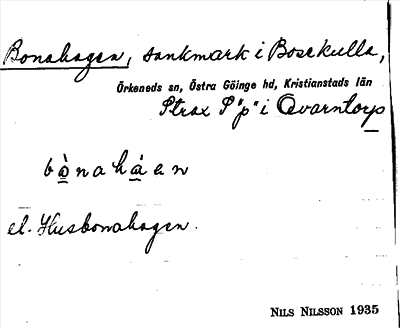 Bonahagen, sankmark i Bosekulla,
Örkeneds sn, Östra Göinge hd, Kristianstads län
Strax S "p" i Qvarntorp
bò̱nahá̱en
el. Husbonahagen.
NILS NILSSON 1935